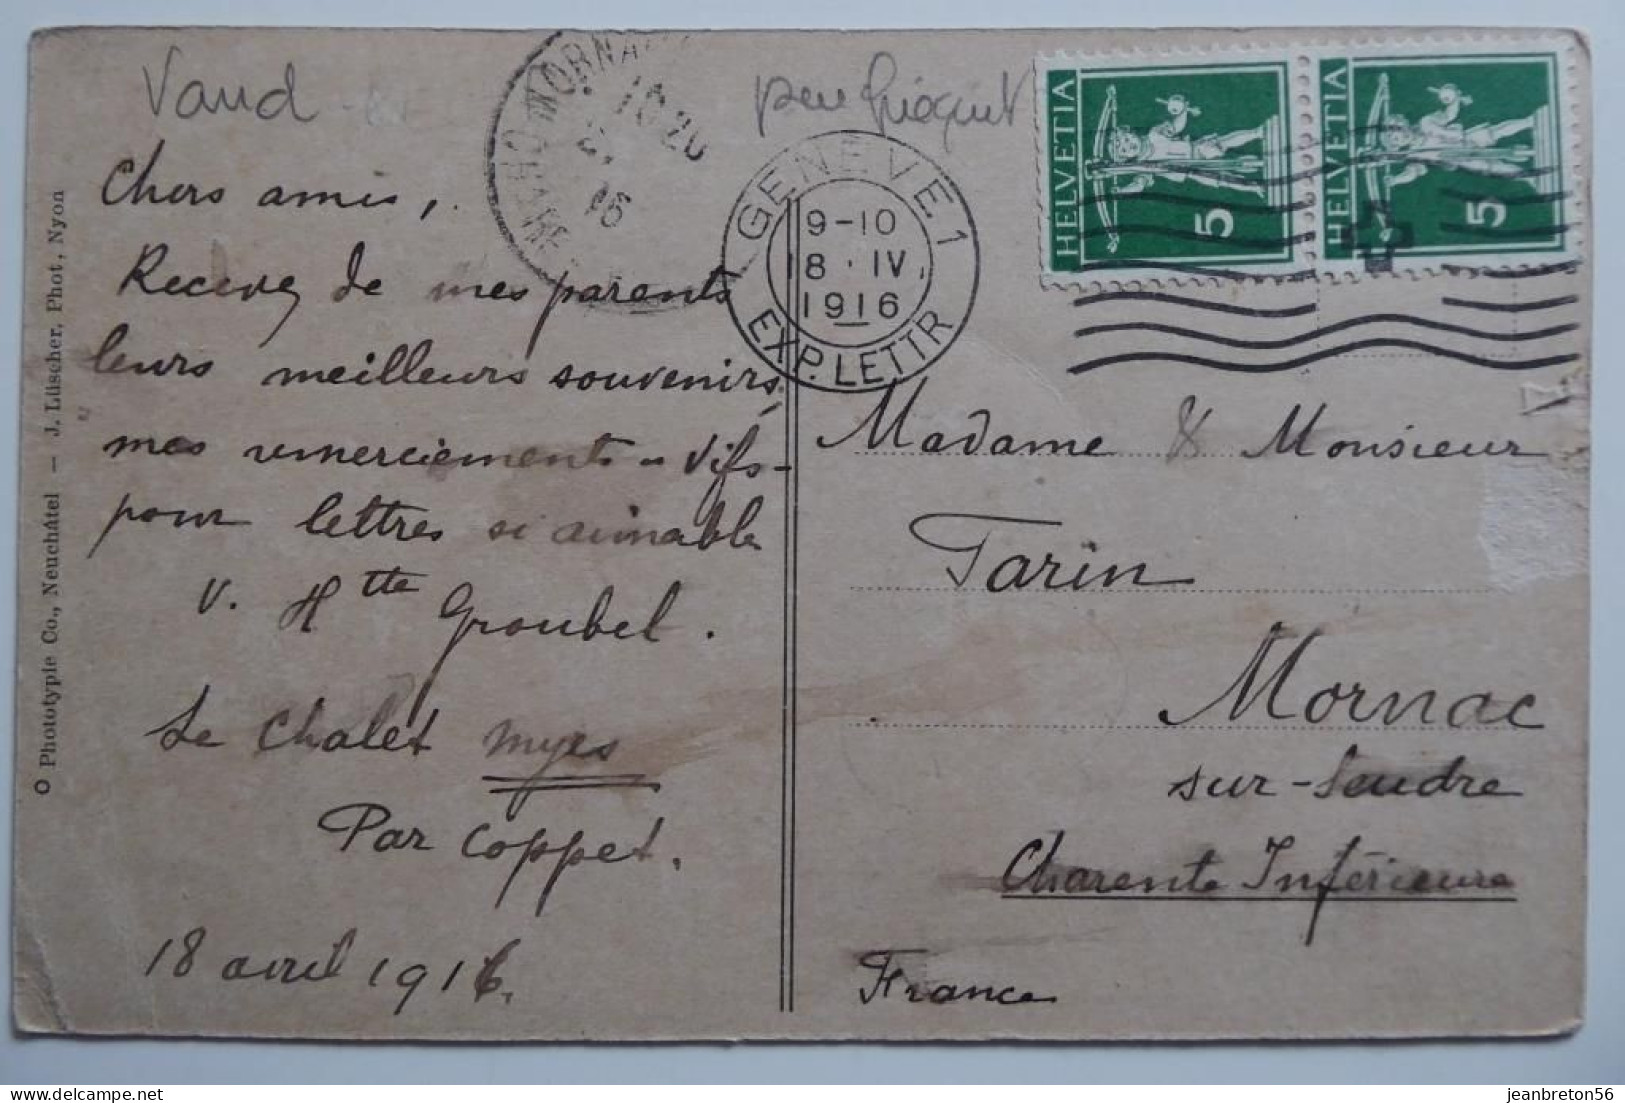 Vaud
peu fréquent
MORNAC
10 20
16
GENÈVE 1
9-10
18·IV.
1916
EXP. LETTR
HELVETIA
5
HELVETIA
5
Chers amis,
Recevez de mes parents
leurs meilleurs souvenirs,
mes remerciements vifs
pour lettres si aimables
V. Htte Groubel.
Le Chalet myes
Par Coppet.
18 avril 1916.
Madame & Monsieur
Tarin
Mornac
sur-Seudre
Charente Inférieure
France
Phototypie Co., Neuchâtel — J. Lüscher, Phot, Nyon
jeanbreton56